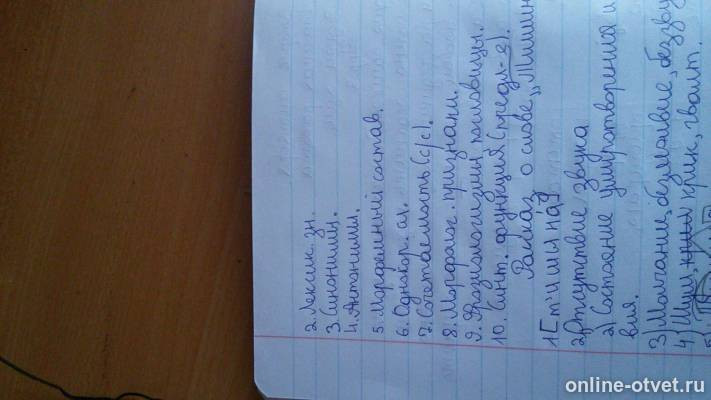 2. Лексич. зн.
3. Синонимы.
4. Антонимы.
5. Морфемный состав.
6. Однокор. сл.
7. Сочетаемость (с/с).
8. Морфолог. признаки.
9. Фразиологизмы, пословицы.
10. Синт. функция (предл-е).
Рассказ о слове „Тишин
1 [т'ишы́на́]
2) Отсутствие звука
2) Состояние умиротворения и
вия.
3) Молчание, безмолвие, беззву
4) Шум, крик, гвалт.
5.
online-otvet.ru